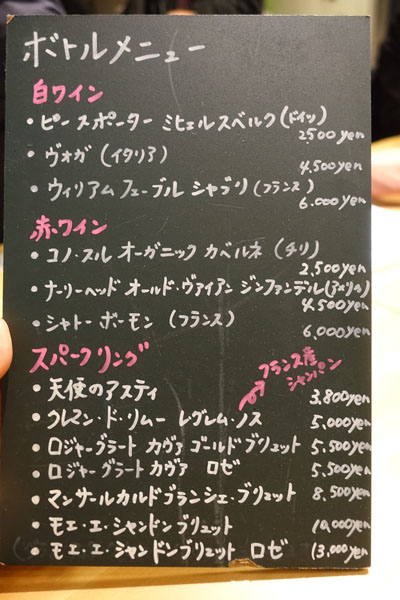 ボトルメニュー
白ワイン
・ピースポーター ミヒェルスベルク(ドイツ)
2,500yen
・ヴォガ (イタリア)
4,500yen
・ウィリアム フェーブル シャブリ (フランス)
6,000yen
赤ワイン
・コノ・スル オーガニック カベルネ (チリ)
2,500yen
・ナーリーヘッド オールド・ヴァイアン ジンファンデル(アメリカ)
4,500yen
・シャトー ボーモン (フランス)
6,000yen
スパークリング
フランス産
シャンパン
・天使のアスティ 3,800yen
・クレマン・ド・リムー レグレム・ノス 5,000yen
・ロジャーグラート カヴァ ゴールド ブリュット 5,500yen
・ロジャーグラート カヴァ ロゼ 5,500yen
・マンサールカルドブランシェ・ブリュット 8,500yen
・モエ・エ・シャンドンブリュット 10,000yen
・モエ・エ・シャンドンブリュット ロゼ 13,000yen